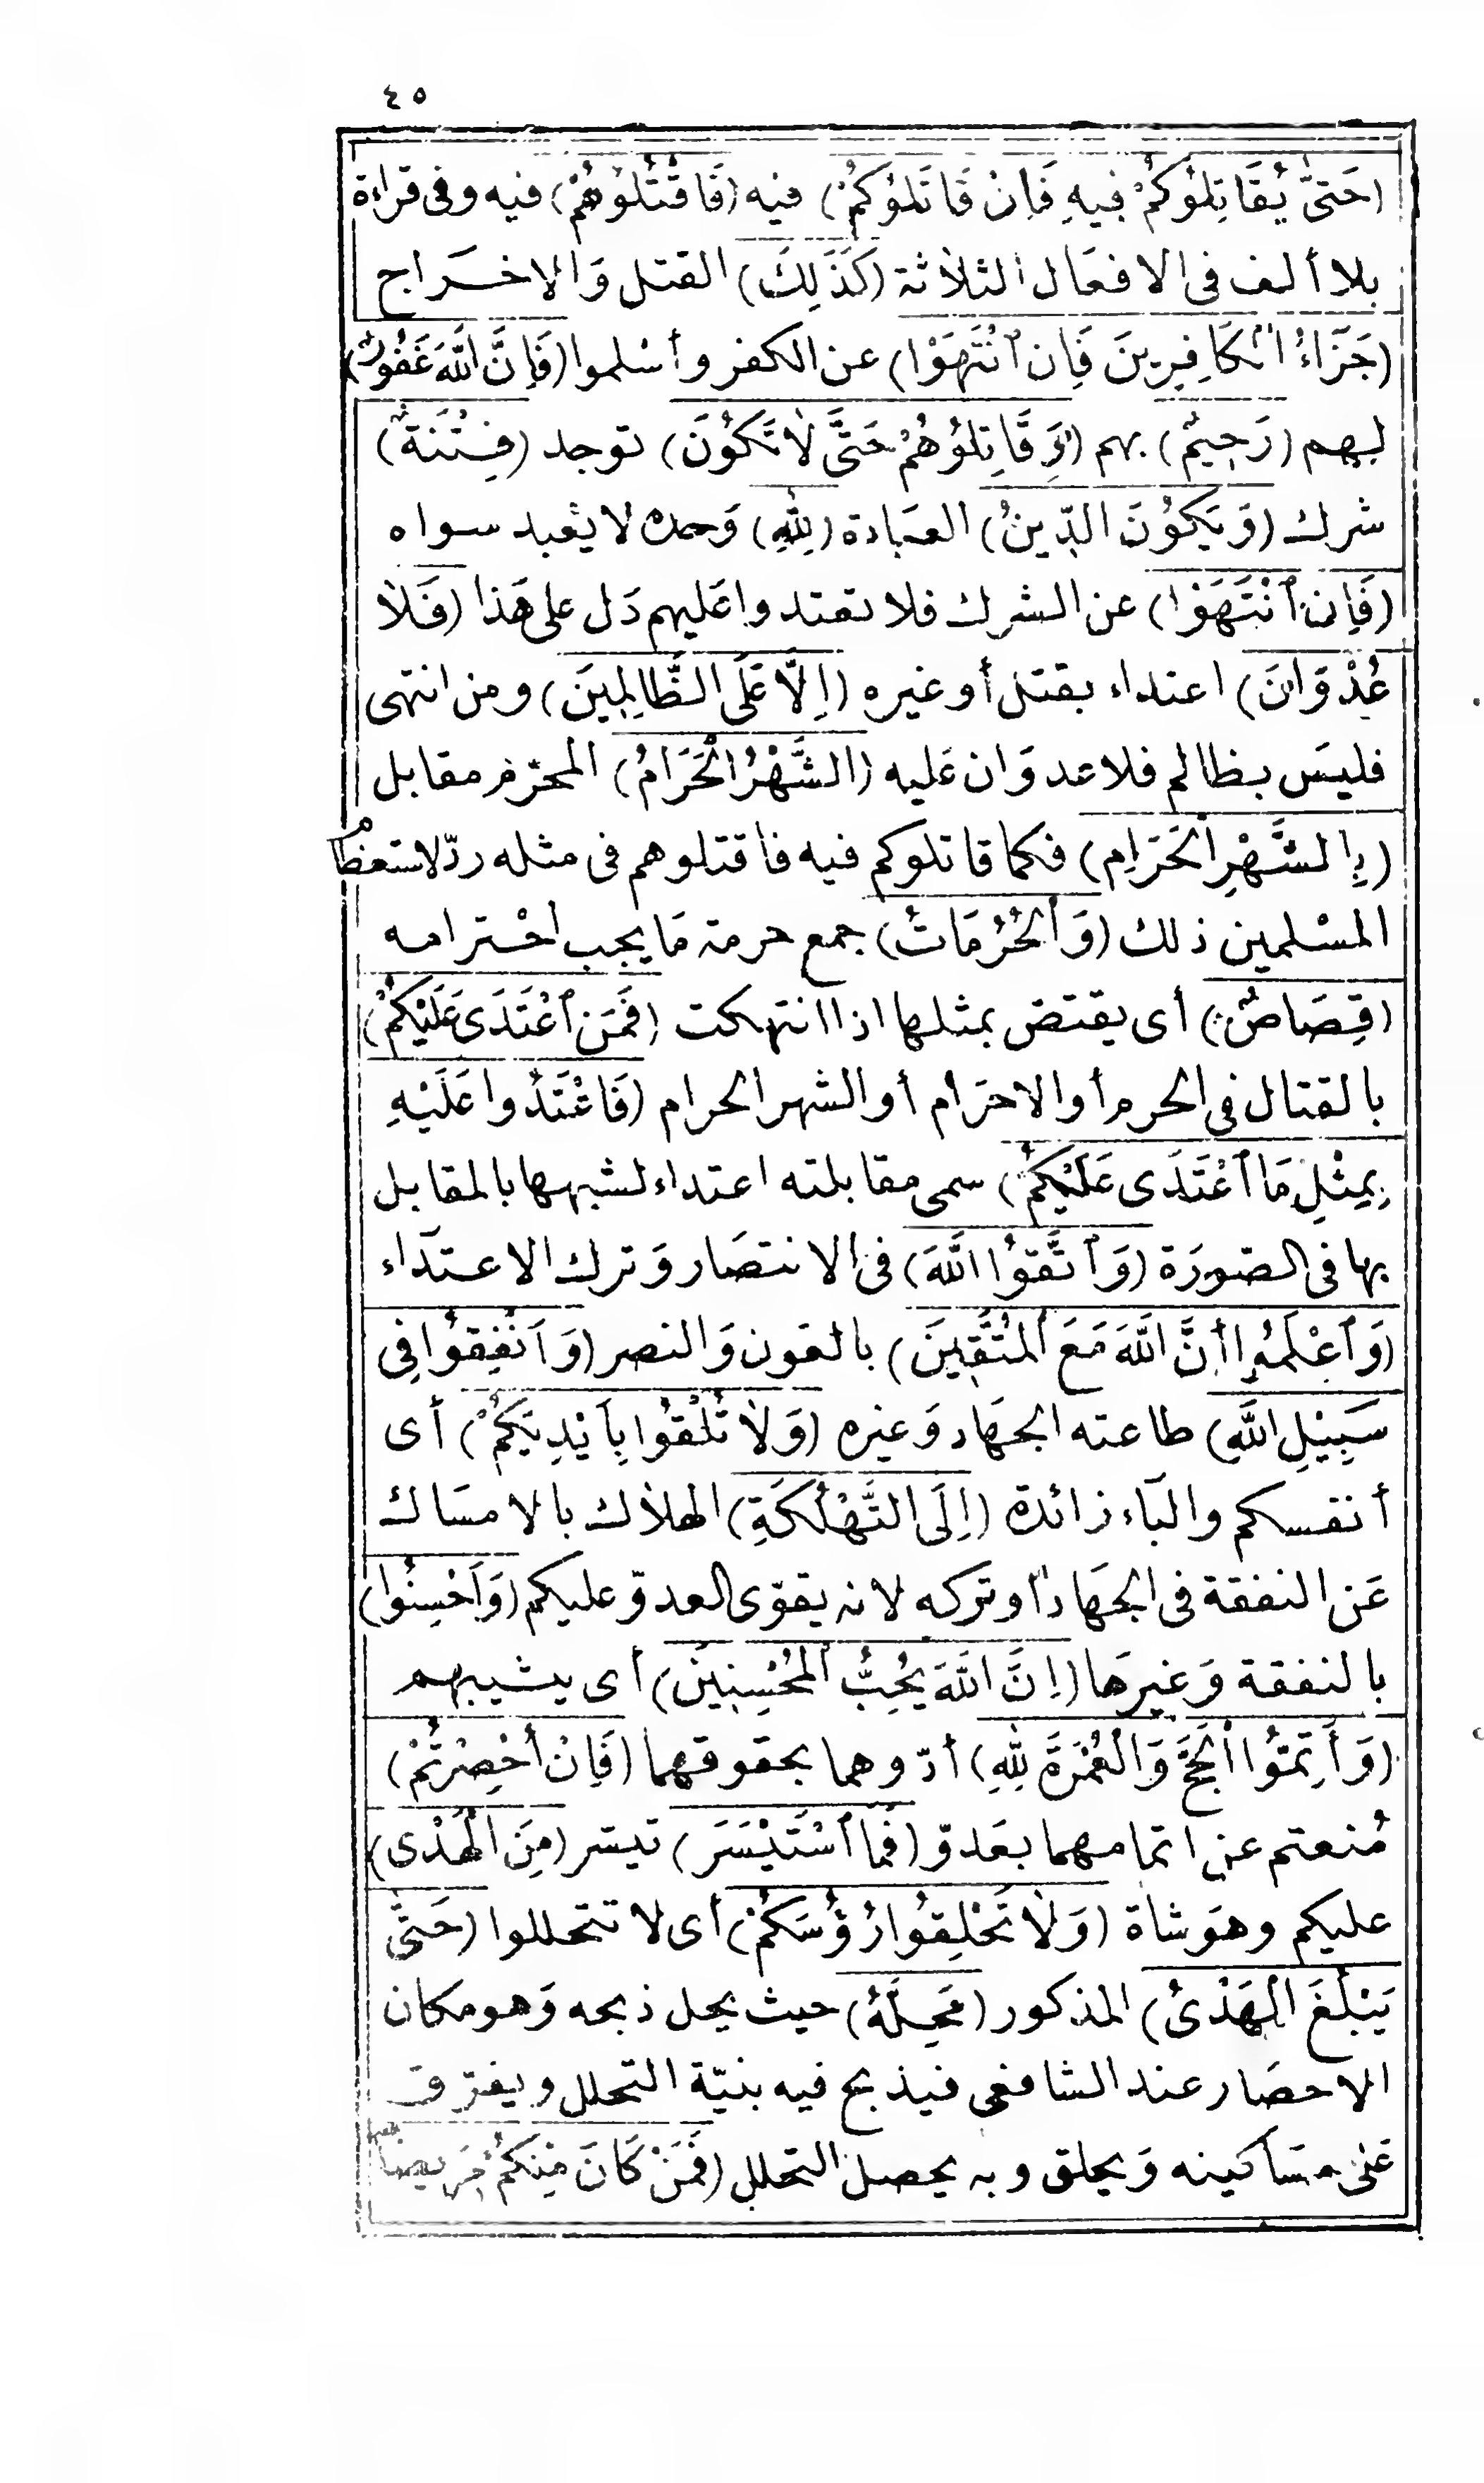 ٤٥
(حَتّىٰ يُقَاتِلُوكُمْ فِيهِ فَاِنْ قَاتَلُوكُمْ) فيه (فَاقْتُلُوهُمْ) فيه وفى قراءة
بلا ألف فى الافعَال الثلاثة (كَذَلِكَ) القتل وَالاخـرَاج
(جَزَاءُ الْكَافِرِينَ فَاِن ٱنْتَهَوْا) عن الكفر وأسْلموا (فَاِنَّ اللَّهَ غَفُورٌ)
لهم (رَحِيمٌ) بهم (وَقَاتِلُوهُمْ حَتَّى لاٰ تَكُونَ) توجد (فِتْنَةٌ)
شرك (وَيَكُونَ الدِّينُ) العبَادة (لِلّٰهِ) وَحده لا يعْبد سواه
(فَاِن ٱنْتَهَوْا) عن الشرك فلا تعتدوا عَليهم دَل على هَذا (فَلاٰ
عُدْوَانَ) اعتداء بقتل أو غيره (اِلَّا عَلَى الظَّالِمِينَ) ومن انتهى
فليسَ بظالم فلا عدوَان عَليه (الشَّهْرُ الْحَرَامُ) المحرّم مقابل
(بِالشَّهْرِ الْحَرَامِ) فكما قاتلوكم فيه فاقتلوهم فى مثله ردّ لاستعظام
المسْلمين ذلك (وَالْحُرُمَاتُ) جمع حرمة مَا يجب احْترامه
(قِصَاصٌ) أى يقتص بمثلها اذا انتهكت (فَمَنِ ٱعْتَدَى عَلَيْكُمْ)
بالقتال فى الحرم أو الاحرَام أو الشهر الحرام (فَاعْتَدُوا عَلَيْهِ
بِمِثْلِ مَا ٱعْتَدَى عَلَيْكُمْ) سمى مقابلته اعتداء لشبهها بالمقابل
بها فى الصورَة (وَٱتَّقُوا اللَّهَ) فى الانتصَار وَترك الاعتدَاء
(وَٱعْلَمُوا أَنَّ اللَّهَ مَعَ الْمُتَّقِينَ) بالعون وَالنصر (وَاَنْفِقُوا فِى
سَبِيْلِ اللَّهِ) طاعته الجهَاد وَغيره (وَلاٰ تُلْقُوا بِاَيْدِيَكُمْ) أى
أنفسكم والبَاء زائدة (اِلَى التَّهْلُكَةِ) الهلاٰك بالامسَاك
عَن النفقة فى الجهَاد أو تركه لانه يقوّى العدوّ عليكم (وَاَحْسِنُوا)
بالنفقة وَغيرهَا (اِنَّ اللَّهَ يُحِبُّ الْمُحْسِنِينَ) أى يثيبهم
(وَأَتِمُّوا الْحَجَّ وَالْعُمْرَةَ لِلّٰهِ) أدّوهما بحقوقهما (فَاِنْ أُحْصِرْتُمْ)
مُنعتم عن اتمامهما بعَدوّ (فَمَا ٱسْتَيْسَرَ) تيسّر (مِنَ الْهَدْىِ)
عليكم وهوَ شاة (وَلاٰ تَحْلِقُوا رُؤُسَكُمْ) أى لا تتحللوا (حَتَّى
يَبْلُغَ الْهَدْىُ) المذكور (مَحِلَّهُ) حيث يحل ذبحه وَهو مكان
الاحصَار عند الشافعى فيذبح فيه بنيّة التحلل ويفرّق
عَلى مسَاكينه وَيحلق وبه يحصل التحلل (فَمَنْ كَانَ مِنْكُمْ مَرِيضًا